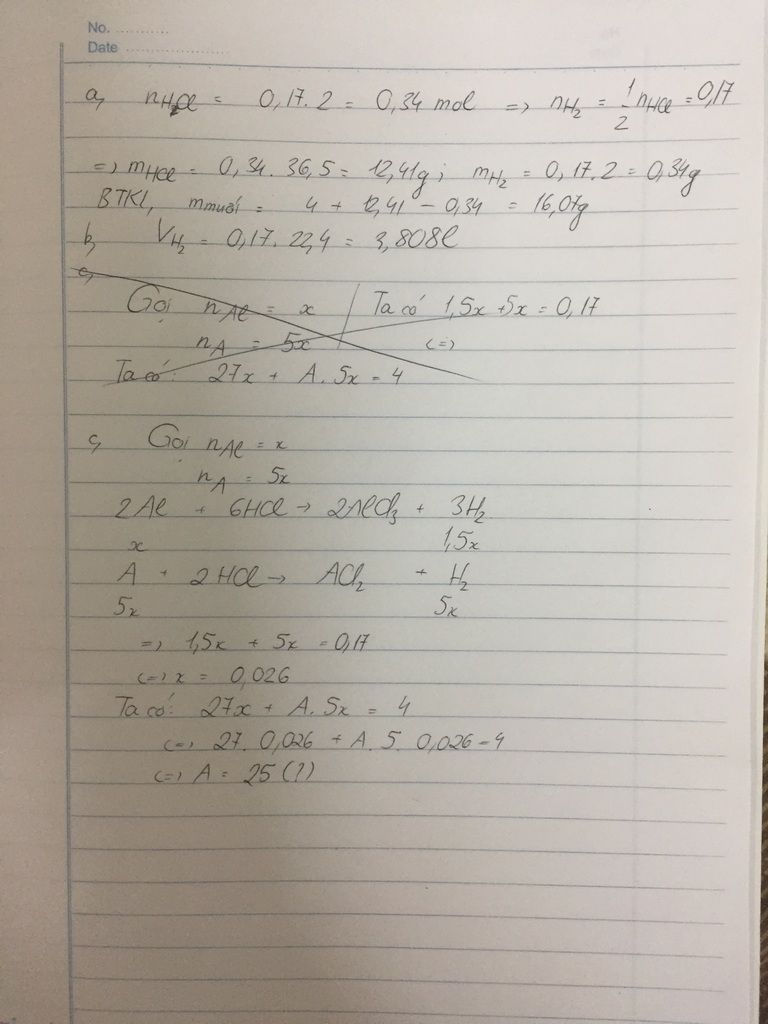 No. ...........
Date .......................
a, nHCl = 0,17. 2 = 0,34 mol => nH₂ = 1/2 nHCl = 0,17
=> mHCl = 0,34. 36,5 = 12,41g; mH₂ = 0,17.2 = 0,34g
BTKL, mmuối = 4 + 12,41 - 0,34 = 16,07g
b, VH₂ = 0,17. 22,4 = 3,808l
c,
Gọi nAl = x / Ta có 1,5x + 5x = 0,17
nA = 5x (=)
Ta có: 27x + A. 5x = 4
c, Gọi nAl = x
nA = 5x
2Al + 6HCl → 2AlCl₃ + 3H₂
x 1,5x
A + 2HCl → ACl₂ + H₂
5x 5x
=> 1,5x + 5x = 0,17
(=) x = 0,026
Ta có: 27x + A. 5x = 4
(=) 27. 0,026 + A. 5. 0,026 = 4
(=) A = 25 (?)